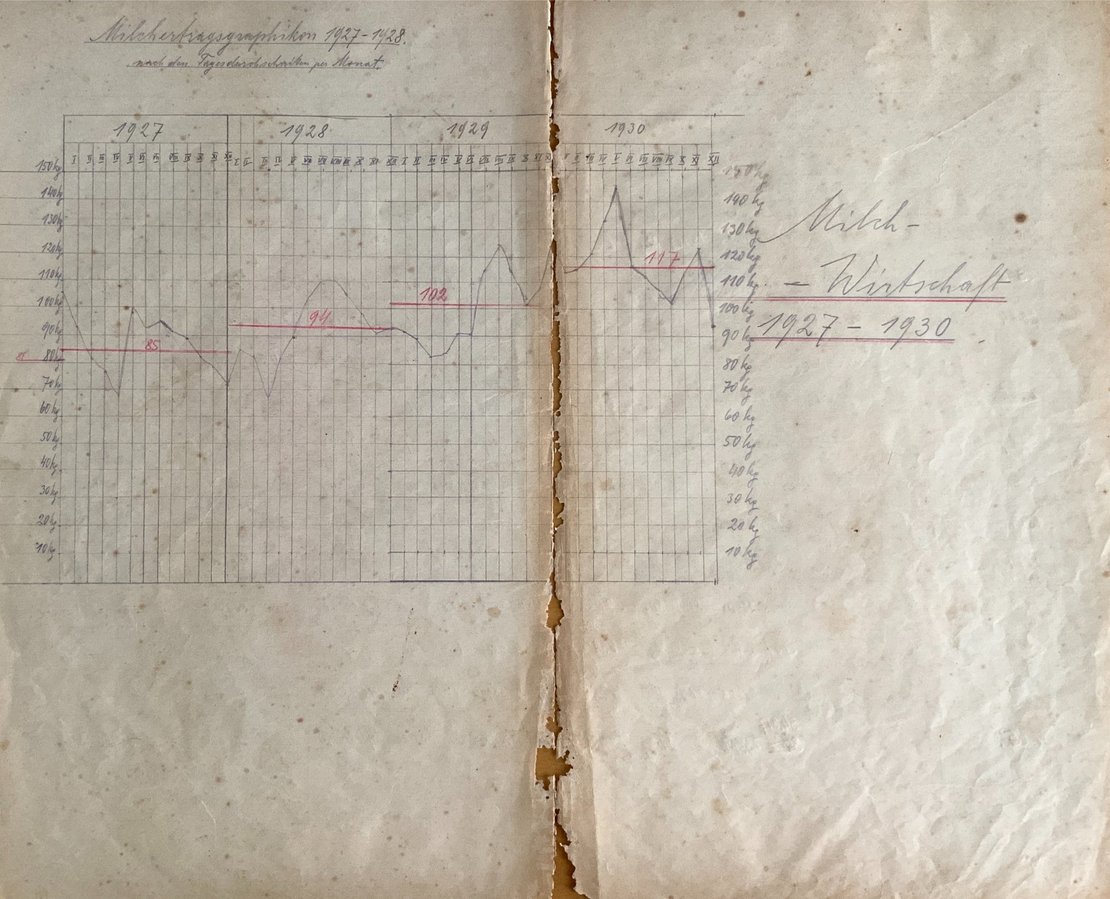 Milchertragsgraphikon 1927-1928.
nach den Tagesdurchschnitten per Monat.
1927 1928 1929 1930
I II III IV V VI VII VIII IX X XI XII
150 kg
140 kg
130 kg
120 kg
110 kg
100 kg
90 kg
80 kg
70 kg
60 kg
50 kg
40 kg
30 kg
20 kg
10 kg
85
94
102
117
150 kg
140 kg
130 kg
120 kg
110 kg
100 kg
90 kg
80 kg
70 kg
60 kg
50 kg
40 kg
30 kg
20 kg
10 kg
Milch-
- Wirtschaft
1927 - 1930